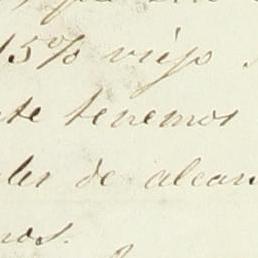 15% viejo
te tenemos
de alcan
nos.